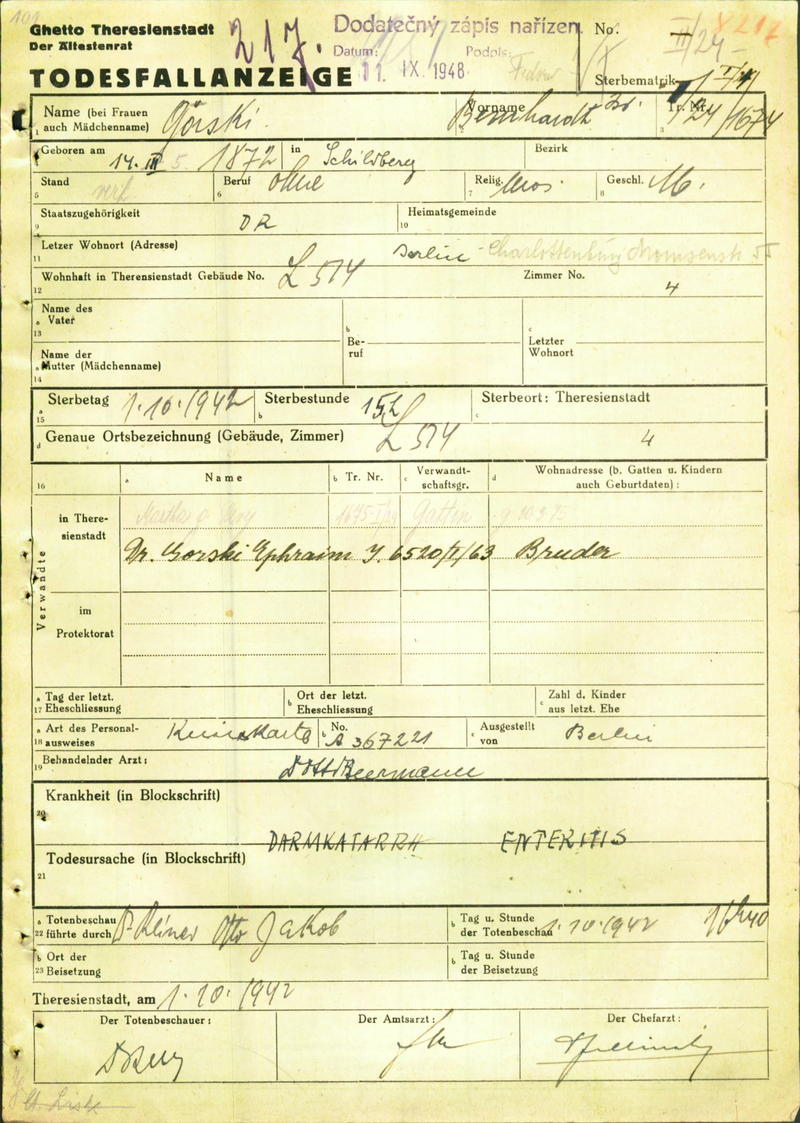 101
Ghetto Theresienstadt
Der Ältestenrat
TODESFALLANZEIGE
217.
Dodatečný zápis nařízen
Datum: Podpis:
11. IX. 1948
No. II/24-
Sterbematrik
Name (bei Frauen auch Mädchenname) Górski
1
Vorname Bernhardt
2
Tr. Nr. I/24/1674
3
Geboren am 14. III 5. 1872 in Schildberg Bezirk
4
Stand verh Beruf ohne Relig. mos. Geschl. M.
5 6 7 8
Staatszugehörigkeit DR Heimatsgemeinde
9 10
Letzer Wohnort (Adresse) Berlin-Charlottenburg
11
Wohnhaft in Therensienstadt Gebäude No. L 514 Zimmer No. 4
12
Name des Vater
a
13
b Beruf
c Letzter Wohnort
Name der Mutter (Mädchenname)
a
14
Sterbetag 1.10.1942 Sterbestunde 15h Sterbeort: Theresienstadt
a 15 b c
d Genaue Ortsbezeichnung (Gebäude, Zimmer) L 514 4
16 a Name b Tr. Nr. c Verwandtschaftsgr. d Wohnadresse (b. Gatten u. Kindern auch Geburtdaten):
Verwandte
in Theresienstadt
Martha Gattin
Dr. Gorski Ephraim J. 6520/I/63 Bruder
im Protektorat
a Tag der letzt. Eheschliessung b Ort der letzt. Eheschliessung c Zahl d. Kinder aus letzt. Ehe
17
a Art des Personalausweises Kennkarte b No. A 367221 c Ausgestellt von Berlin
18
19 Behandelnder Arzt:
Krankheit (in Blockschrift)
20
DARMKATARRH ENTERITIS
Todesursache (in Blockschrift)
21
a Totenbeschau führte durch Otto Jakob b Tag u. Stunde der Totenbeschau 1.10.1942 16h40
22
b Ort der Beisetzung b Tag u. Stunde der Beisetzung
23
Theresienstadt, am 1.10.1942
Der Totenbeschauer: Der Amtsarzt: Der Chefarzt: